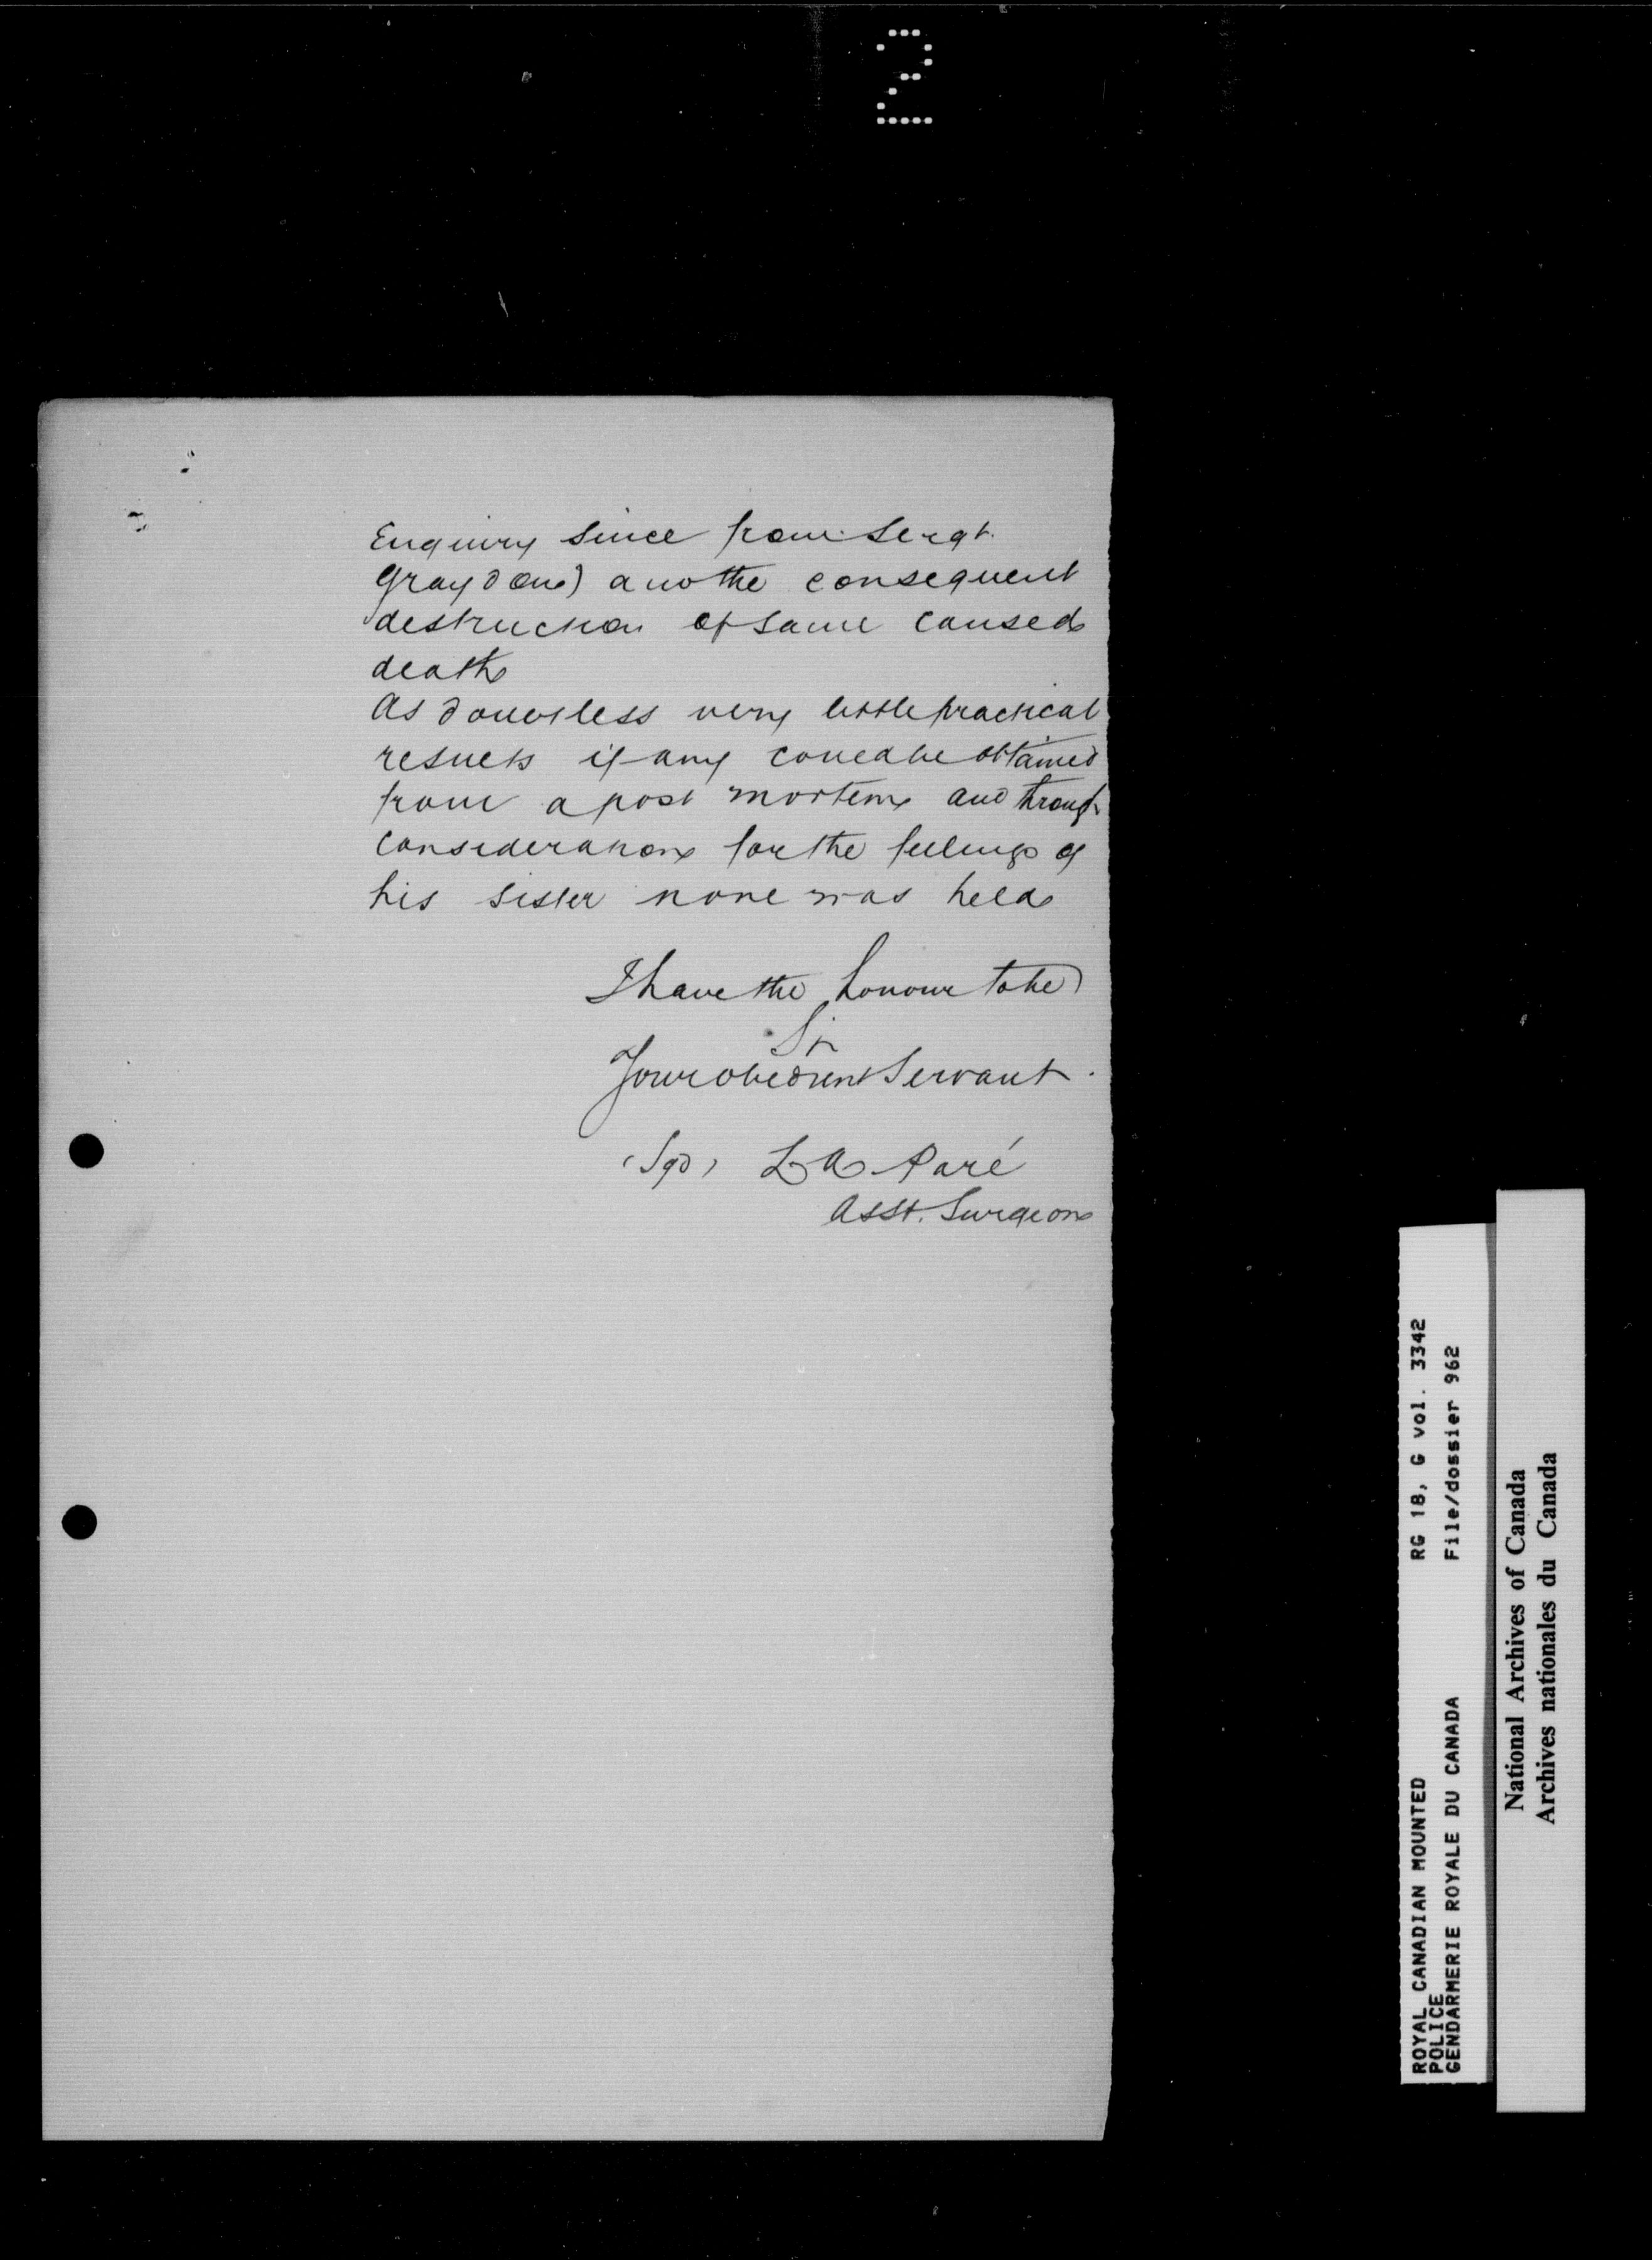 2
Enquiry since from Sergt.
Graydon) and the consequent
destruction of same caused
death
As doubtless very little practical
results if any could be obtained
from a post mortem and through
consideration for the feelings of
his sister none was held
I have the honour to be
Sir
Your obedient Servant.
(Sgd) L A Paré
Asst. Surgeon
ROYAL CANADIAN MOUNTED POLICE
GENDARMERIE ROYALE DU CANADA
RG 18, G vol. 3342
File/dossier 962
National Archives of Canada
Archives nationales du Canada